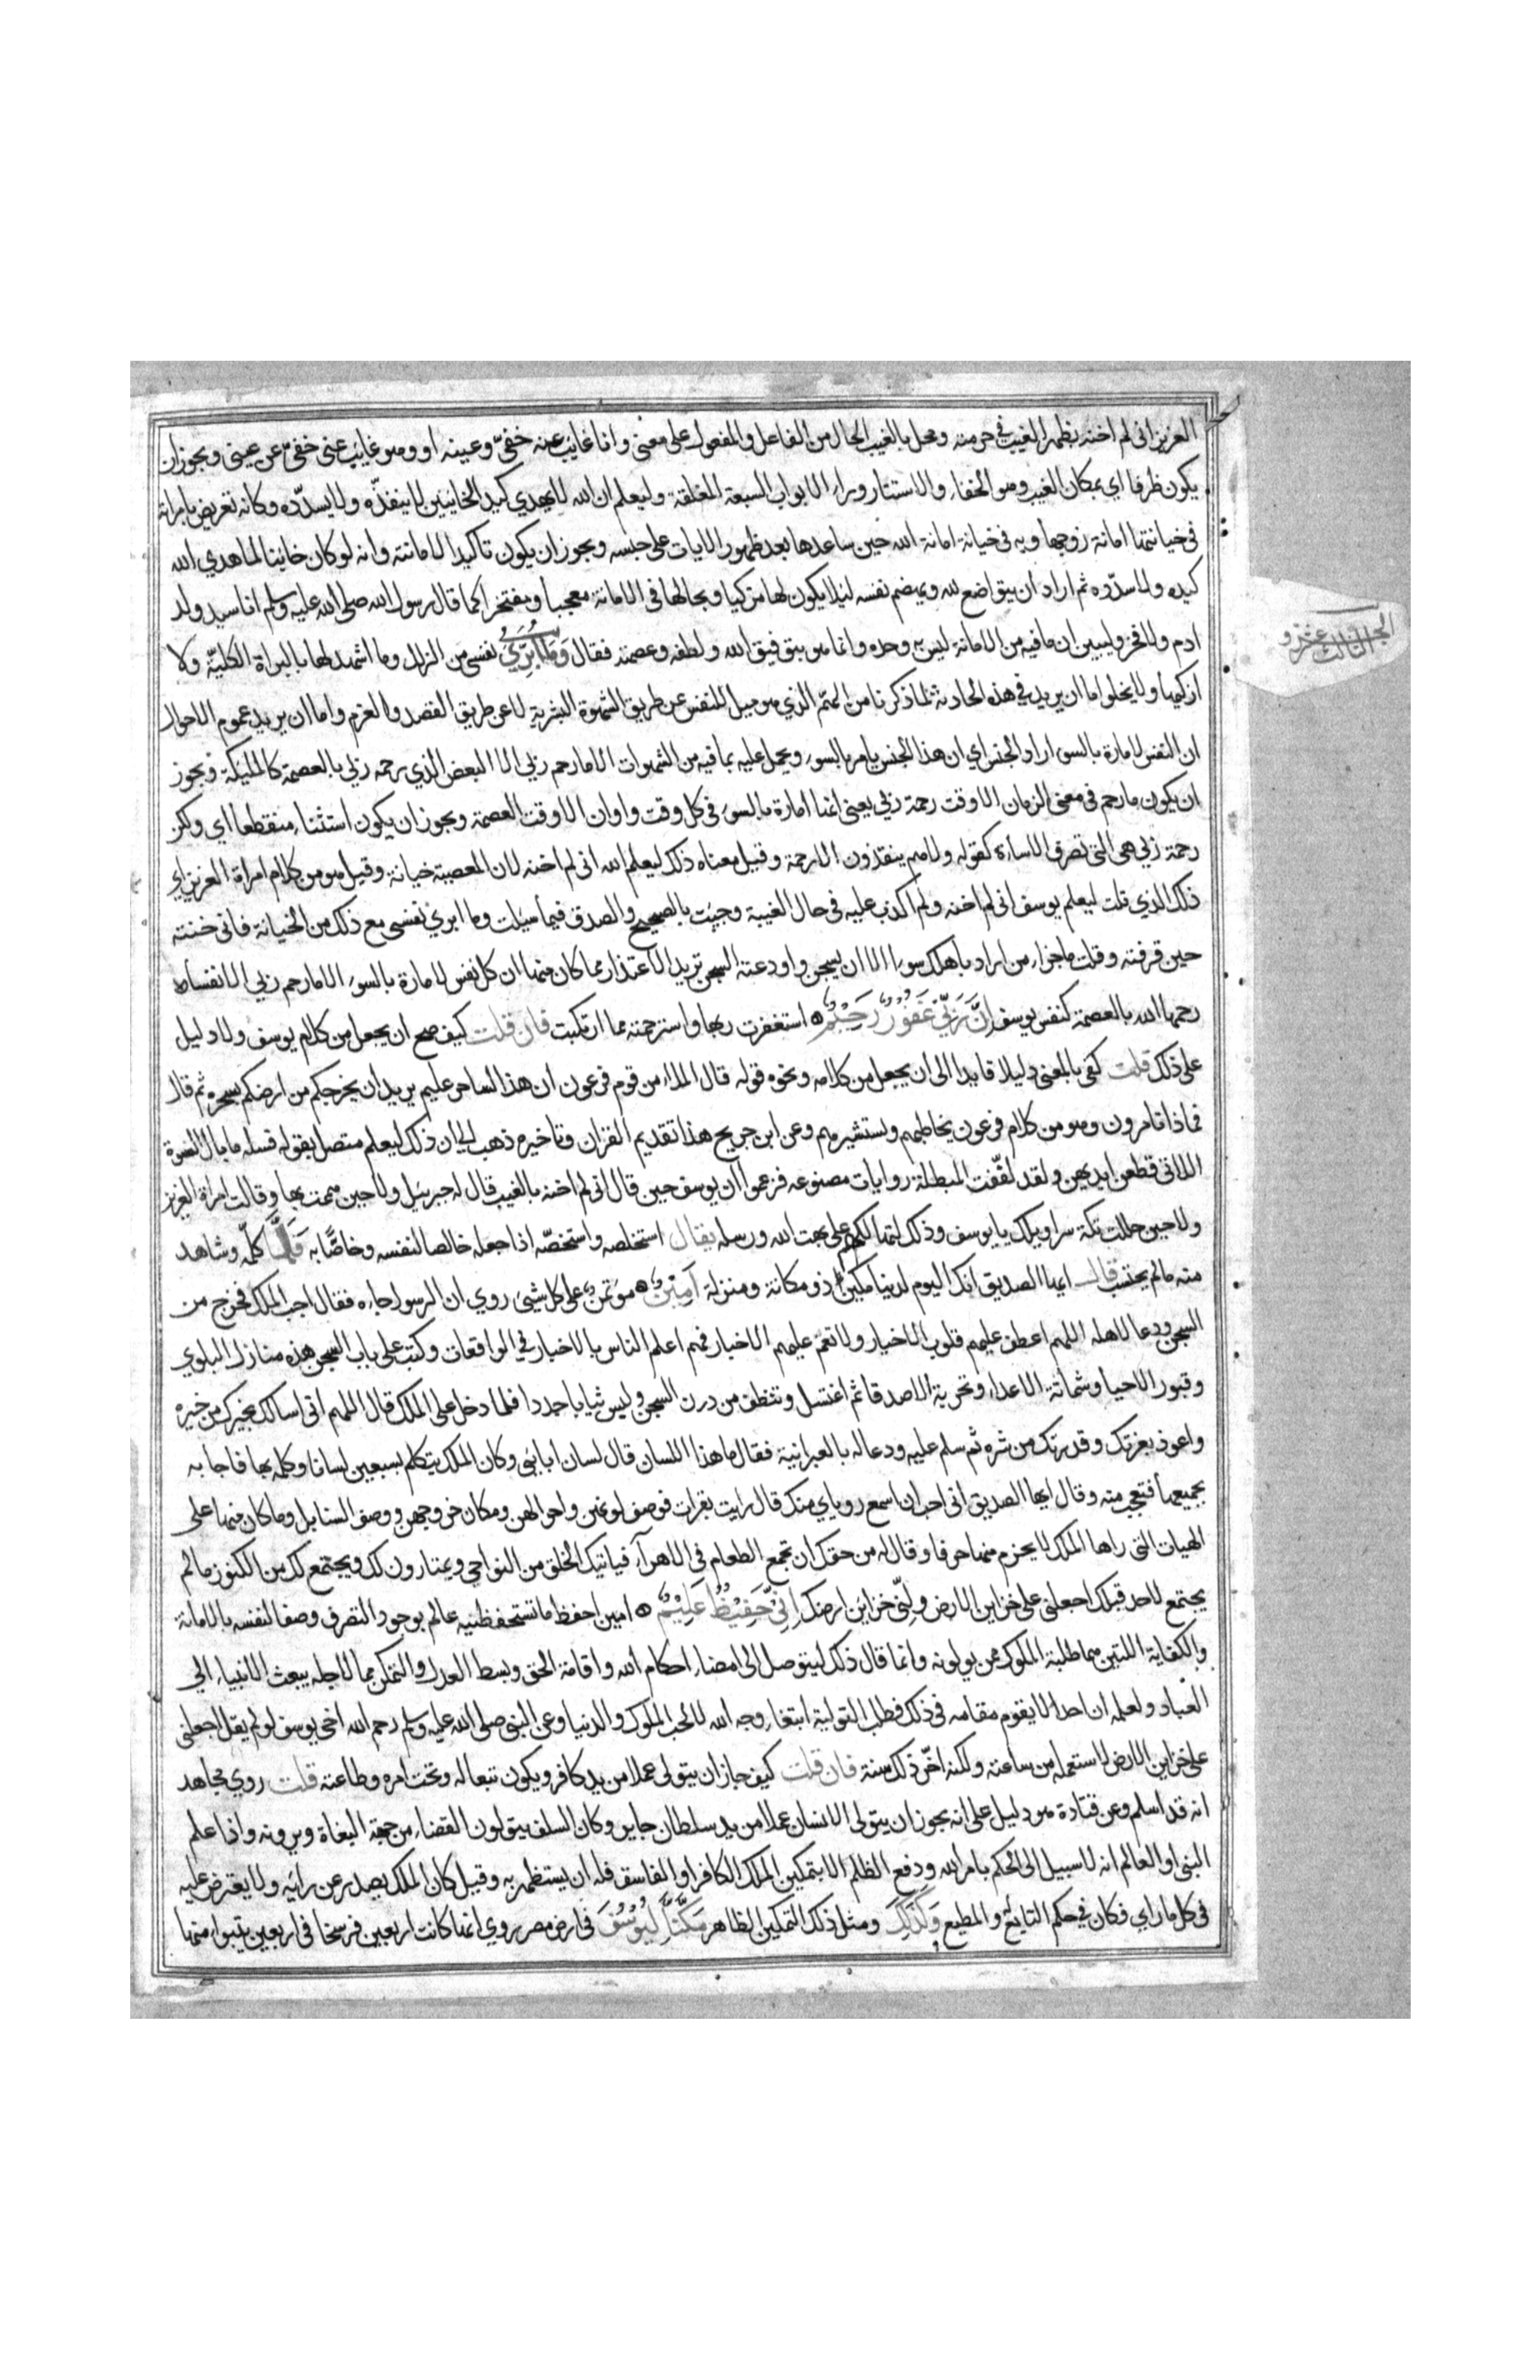 العزيز انى لم اخنه بظهر الغيب فى حرمته ومحل بالغيب الحال من الفاعل والمفعول على معنى وانا غايب عنه خفىّ وعينه او وهو غايب عنى خفىّ عن عينى ويجوز ان
يكون ظرفا اى بمكان الغيب وهو الخفاء والاستتار وراء الابواب السبعة المغلقة وليعلم ان الله لا يهدي كيد الخاينين لا ينفذّه ولا يسدّده وكانه تعريض بامراته
فى خيانتها امانة زوجها وبه فى خيانة امانة الله حين ساعدها بعد ظهور الايات على حبسه ويجوز ان يكون تاكيدا لامانته وانه لو كان خاينا لما هدي الله
كيده ولا سدّده ثم اراد ان يتواضع لله ويهضم نفسه ليلا يكون لها مزكيا وبحالها فى الامانة معجبا ومفتخرا كما قال رسول الله صلى الله عليه وسلم انا سيد ولد
ادم ولا فخر وليبين ان ما فيه من الامانة ليس به وحده وانما هو بتوفيق الله ولطفه وعصمته فقال وَمَا اُبَرِّئُ نفسى من الزلل وما اشهد لها بالبراة الكليّة ولا
ازكيها ولا يخلوا اما ان يريد فى هذه الحادثة لما ذكرنا من الهمّ الذي هو ميل النفس عن طريق الشهوة البشرية لا عن طريق القصد والعزم واما ان يريد عموم الاحوال
ان النفس لامارة بالسوء اراد الجنس اي ان هذا الجنس يامر بالسوء ويحمل عليه بما فيه من الشهوات الا ما رحم ربى الا البعض الذي رحمه ربى بالعصمة كالمليكة ويجوز
ان يكون ما رحم فى معنى الزمان الا وقت رحمة ربى يعنى انها امارة بالسوء فى كل وقت واوان الا وقت العصمة ويجوز ان يكون استثناء منقطعا اي ولكن
رحمة ربى هى التى تصرف الاساءة كقوله ولا هم ينقذون الا رحمة وقيل معناه ذلك ليعلم الله انى لم اخنه لان المعصية خيانة وقيل هو من كلام امراة العزيز اي
ذلك الذي قلت ليعلم يوسف انى لم اخنه ولم اكذب عليه فى حال الغيبة وجيت بالصحيح والصدق فيما سيلت وما ابري نفسى مع ذلك من الخيانة فانى خنته
حين قرفته وقلت ما جزاء من اراد باهلك سوءا الا ان يسجن واودعته السجن تريد الاعتذار مما كان منها ان كل نفس لامارة بالسوء الا ما رحم ربى الا نفسا
رحمها الله بالعصمة كنفس يوسف اِنَّ رَبِّى غَفُوْرٌ رَّحِيْمٌ استغفرت ربها واسترحمته مما ارتكبت فان قلت كيف صح ان يجعل من كلام يوسف ولا دليل
على ذلك قلت كفى بالمعنى دليلا قايدا الى ان يجعل من كلامه ونحوه قوله قال الملاء من قوم فرعون ان هذا لساحر عليم يريد ان يخرجكم من ارضكم بسحره ثم قال
فماذا تامرون وهو من كلام فرعون يخاطبهم ويستشيرهم وعن ابن جريج هذا تقديم القران وتاخيره ذهب الى ان ذلك ليعلم متصل بقوله فسله ما بال النسوة
اللاتى قطعن ايديهن ولقد لفّقت المبطلة روايات مصنوعه فزعموا ان يوسف حين قال انى لم اخنه بالغيب قال له جبرييل ولا حين هممت بها وقالت امراة العزيز
ولا حين حللت تكة سراويلك يا يوسف وذلك لتهالكهم على بهت الله ورسله يقال استخلصه واستخصّه اذا جعله خالصا لنفسه وخاصّا به فَلَمَّا كلّمه وشاهد
منه ما لم يحتسب قال ايها الصديق انك اليوم لدينا مكين ذو مكانة ومنزلة اَمِيْنٌ موتمن على كل شيئ روي ان الرسول جاءه فقال اجب الملك فخرج من
السجن ودعا لاهله اللهم اعطف عليهم قلوب الاخيار ولا تعمّ عليهم الاخبار فهم اعلم الناس بالاخبار فى الواقعات وكتب على باب السجن هذه منازل البلوي
وقبور الاحيا وشماتة الاعداء وتجربة الاصدقا ثم اغتسل وتنظف من درن السجن ولبس ثيابا جددا فلما دخل على الملك قال اللهم انى اسالك بخيرك من خيره
واعوذ بعزتك وقدرتك من شره ثم سلم عليه ودعا له بالعبرانية فقال ما هذا اللسان قال لسان ابايئ وكان الملك يتكلم بسبعين لسانا وكلمه بها فاجابه
بجميعها فتعجب منه وقال ايها الصديق انى احب ان اسمع روياي منك قال رايت بقرات فوصف لونهن واحوالهن ومكان خروجهن ووصف السنابل وما كان منها على
الهيات التى راها الملك لا يخرم منها حرفا وقال له من حقك ان تجمع الطعام فى الاهرآء فياتيك الخلق من النواحى ويمتارون لك ويجتمع لك من الكنوز ما لم
يجتمع لاحد قبلك اجعلنى على خزاين الارض ولّنى خزاين ارضك اِنِّى حَفِيْظٌ عَلِيْمٌ امين احفظ ما تستحفظنيه عالم بوجوه التصرف وصفا لنفسه بالامانة
والكفاية اللتين هما طلبة الملوك ممن يولونه وانما قال ذلك ليتوصل الى امضاء احكام الله واقامة الحق وبسط العدل والتمكن مما لاجله يبعث الانبياء الى
العباد ولعلمه ان احدا لا يقوم مقامه فى ذلك فطلب التولية ابتغاء وجه الله لا لحب الملوك والدنيا وعن النبى صلى الله عليه وسلم رحم الله اخى يوسف لو لم يقل اجعلنى
على خزاين الارض لاستعمله من ساعته ولكنه اخّر ذلك سنة فان قلت كيف جاز ان يتولى عملا من يد كافر ويكون تبعا له وتحت امره وطاعته قلت روي مجاهد
انه قد اسلم وعن قتادة هو دليل على انه يجوز ان يتولى الانسان عملا من يد سلطان جاير وكان السلف يتولون القضاء من جهة البغاة ويرونه واذا علم
النبى او العالم انه لا سبيل الى الحكم بامر الله ودفع الظلم الا بتمكين الملك الكافر او الفاسق فله ان يستظهر به وقيل كان الملك يصدر عن رايه ولا يعترض عليه
فى كل ما راي فكان فى حكم التابع والمطيع وَكَذٰلِكَ ومثل ذلك التمكين الظاهر مَكَّنَّا لِيُوْسُفَ فى ارض مصر روي انها كانت اربعين فرسخا فى اربعين يتبوا منها
الجزالثالث عشر